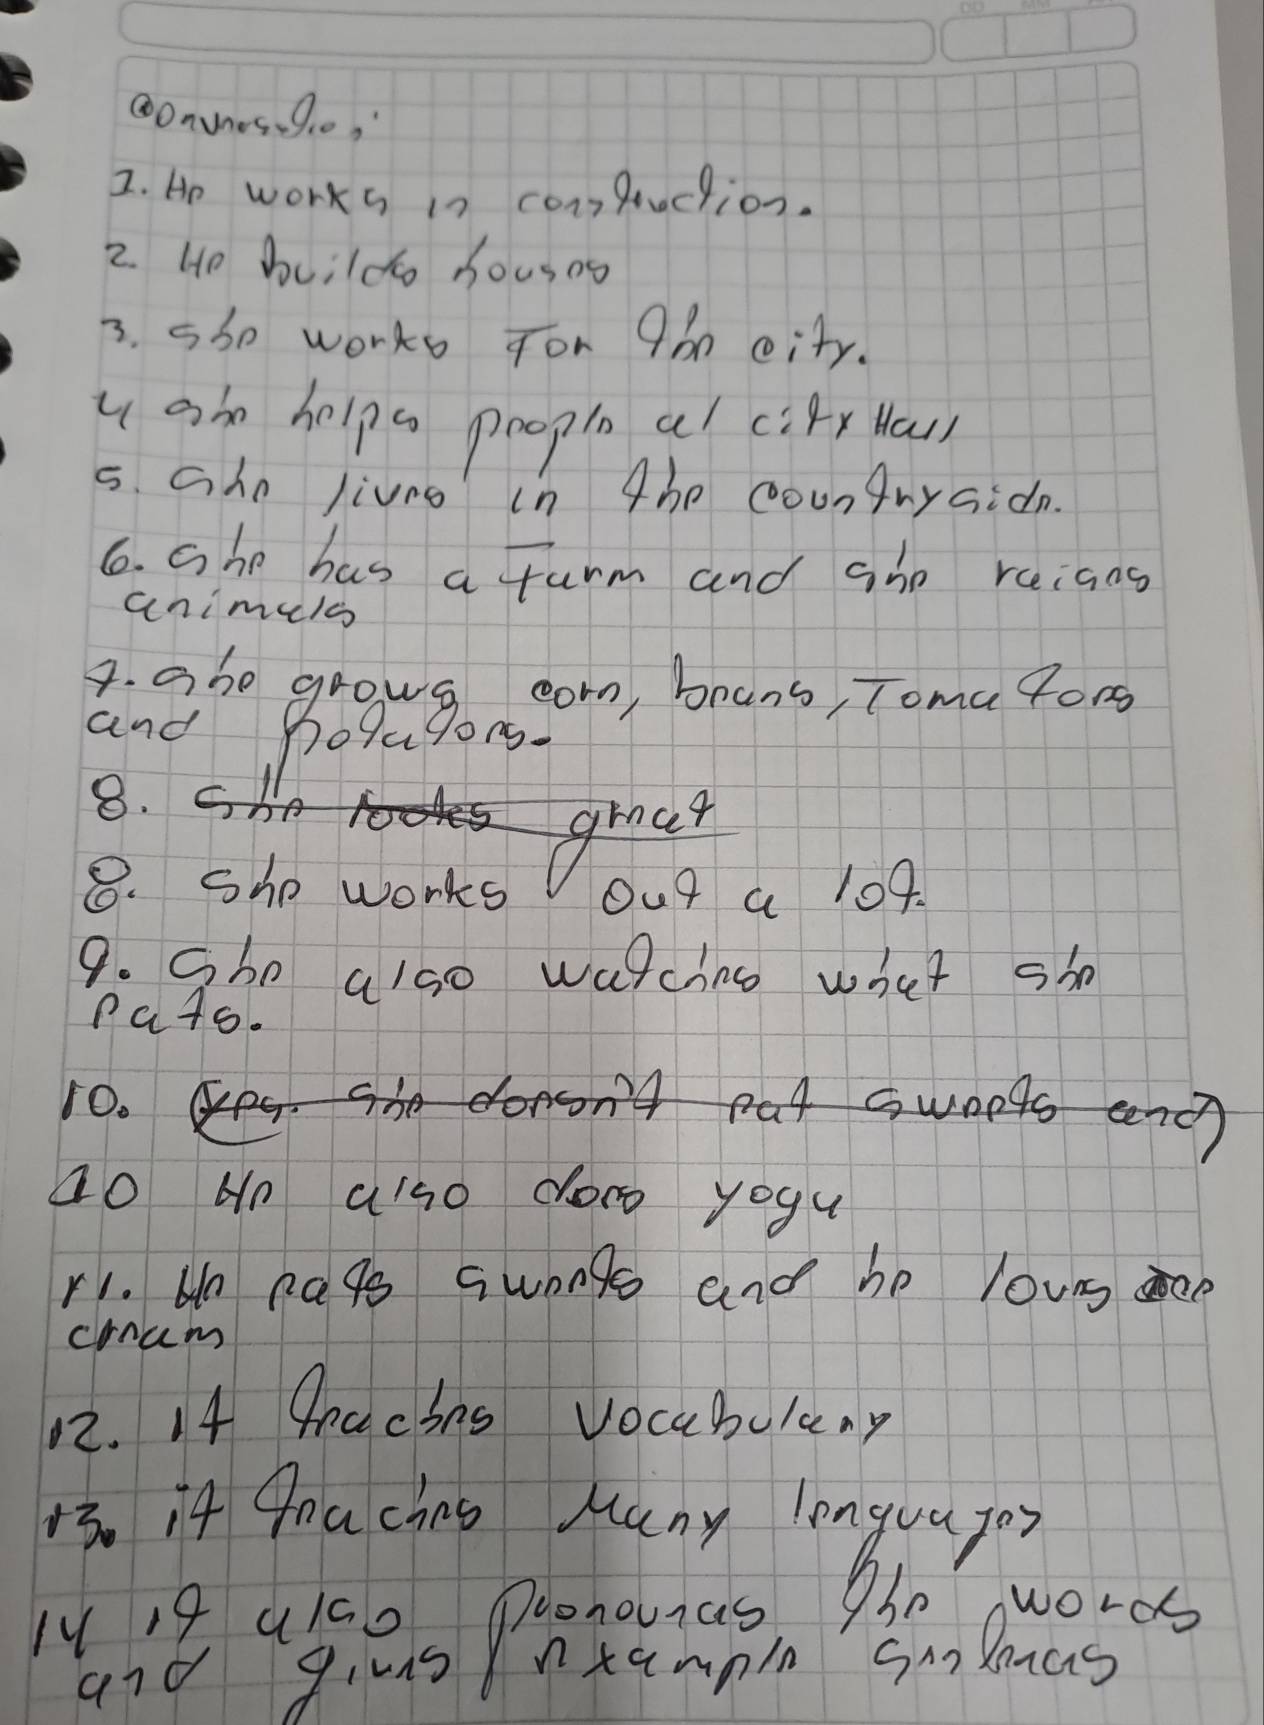 1. He works in construction.
2. He builds houses
3. She works For the city.
4 she helps people at city Hall
5. She lives in the countryside.
6. She has a farm and she raises
animals
7. She grows corn, beans, Tomatoes
and potatoes.
8. She looks great
8. She works out a lot.
9. She also watches what she
eats.
10. (yes. She doesn't eat sweets and)
10 He also does yoga
11. He eats sweets and he loves ice
cream
12. it teaches vocabulary
13. it teaches Many lenguages
14 it also pronounces the words
and gives example sentences
DD MM